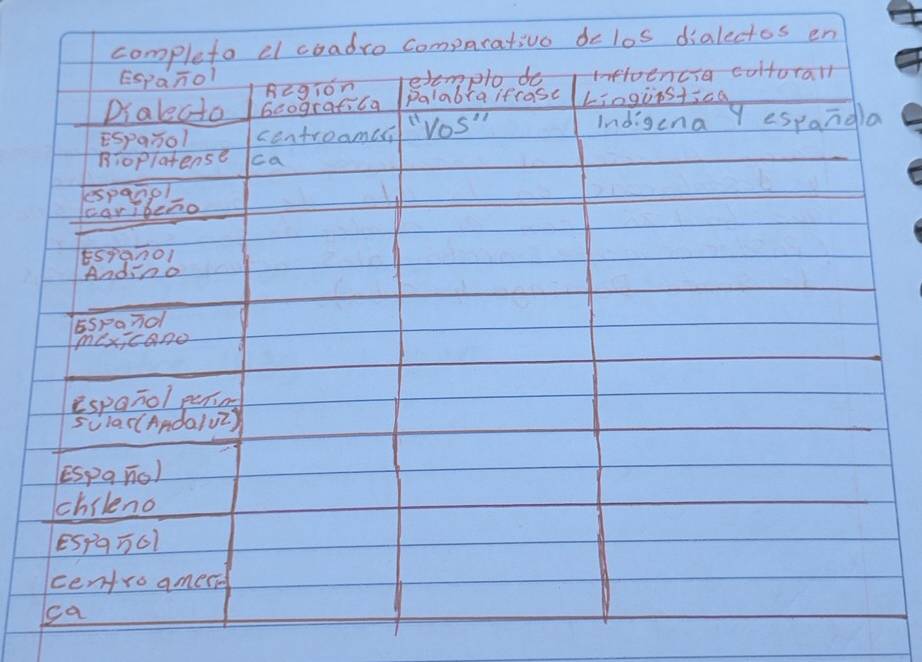 completa el cuadro comparativo de los dialectos en
Español
Dialecto
Región
Geográfica
ejemplo de
palabra/frase
influencia cultural/
Lingüística
Español
Rioplatense
centroameri
ca
"Vos"
Indígena y española
español
caribeño
Español
Andino
Español
mexicano
español penin
sular(Andaluz)
Español
chileno
Español
centroameri
ca